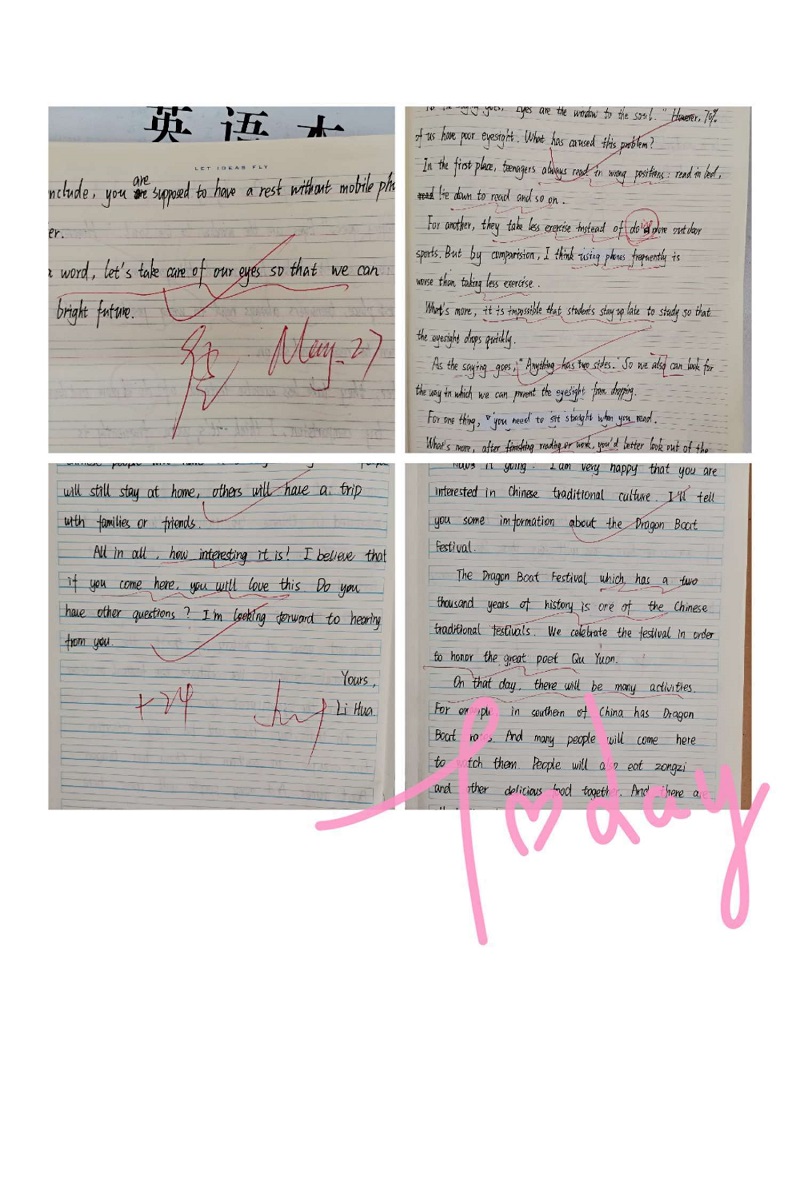 英语本
LET IDEAS FLY
nclude, you are supposed to have a rest without mobile ph
er.
word, let's take care of our eyes so that we can
bright future.
May. 27
Eyes are the window to the soul." However, 70%
of us have poor eyesight. What has caused this problem?
In the first place, teenagers always read in wrong positions: read in bed,
lie down to read and so on.
For another, they take less exercise instead of do more outdoor
sports. But by comparision, I think using phones frequently is
worse than taking less exercise.
What's more, it is impossible that students stay up late to study so that
the eyesight drops quickly.
As the saying goes, "Anything has two sides." So we also can look for
the way in which we can prevent the eyesight from dropping.
For one thing, you need to sit straight when you read.
What's more, after finishing reading or work, you'd better look out of the
will still stay at home, others will have a trip
with families or friends.
All in all, how interesting it is! I believe that
if you come here, you will love this Do you
have other questions? I'm looking forward to hearing
from you.
Yours,
Li Hua
+24
How's it going? I am very happy that you are
interested in Chinese traditional culture. I'll tell
you some imformation about the Dragon Boat
Festival.
The Dragon Boat Festival which has a two
thousand years of history is one of the Chinese
traditional festivals. We celebrate the festival in order
to honor the great poet Qu Yuan.
On that day, there will be many activities.
For example in southern of China has Dragon
Boat races. And many people will come here
to watch them. People will also eat zongzi
and other delicious food together. And there are
Today